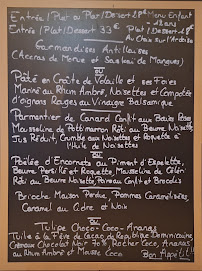 Entrée / Plat ou Plat / Dessert 28€ Menu Enfant
Entrée / Plat / Dessert 33€ Plat / Dessert
Au Choix sur l'Ardoise
Gourmandises Antillaises
(Accras de Morue et Samossi de Mangues)
ou
Pâté en Croûte de Volaille et ses Foies
Mariné au Rhum Ambré, Noisettes et Compotée
d'oignons Rouges au Vinaigre Balsamique
Parmentier de Canard Confit aux Baies Roses
Mousseline de Potimarron Rôti au Beurre Noisette
Jus Réduit, Crumble aux Noisettes et Roquette à
l'Huile de Noisettes
ou
Poêlée d'Encornets au Piment d'Espelette,
Beurre Persillé et Roquette, Mousseline de Céleri
Rôti au Beurre Noisette, Poireau Confit et Brocolis
Brioche Maison Perdue, Pommes Caramélisées,
Caramel au Cidre et Noix
ou
Tulipe Choco-Coco-Ananas
Tuile à la Fève de Cacao de République Dominicaine
Crémeux Chocolat Noir 70%, Rocher Coco, Ananas
au Rhum Ambré et Mousse Coco Bon Appétit!